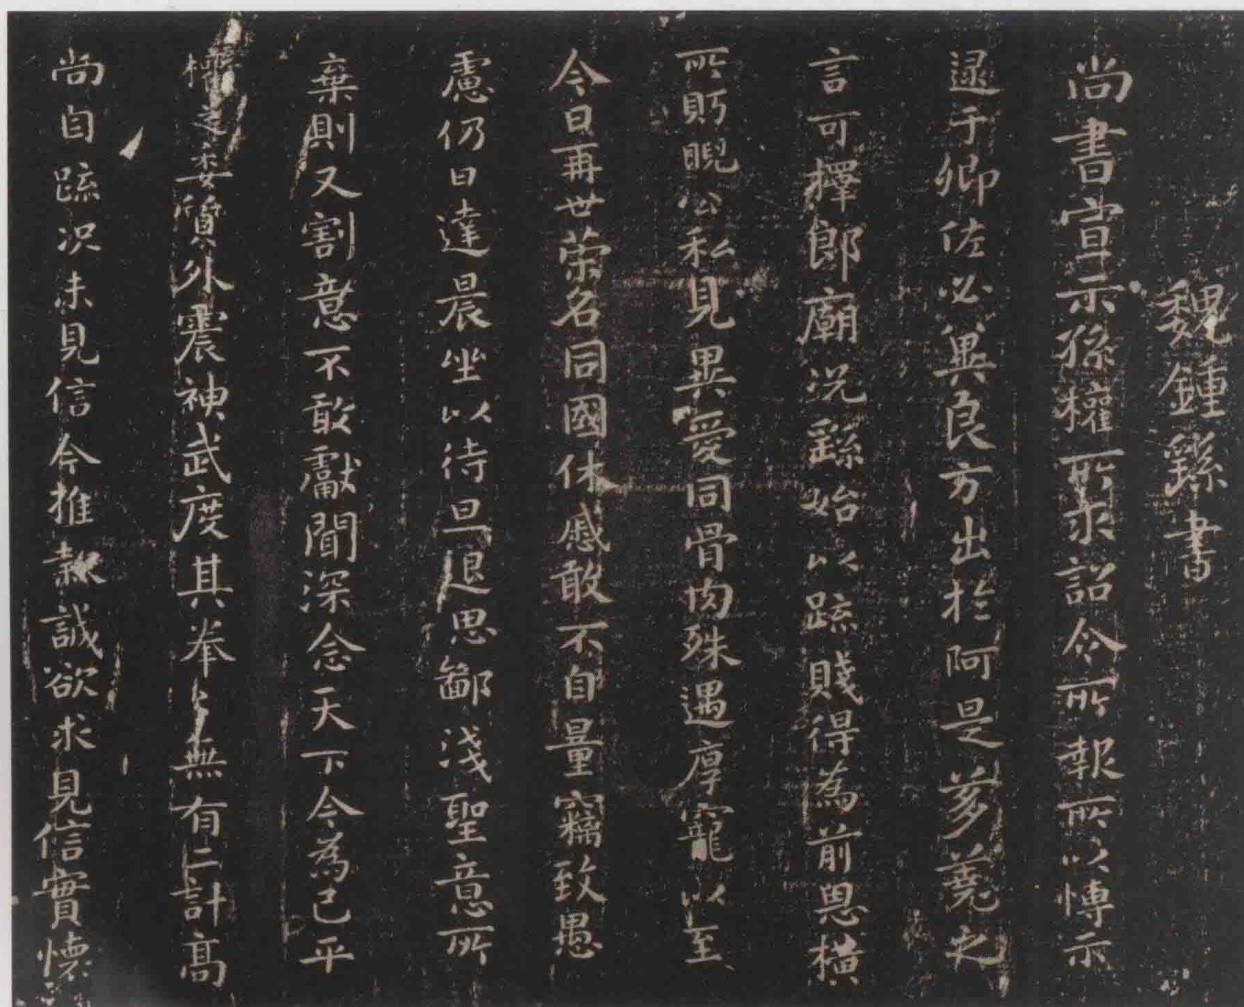 魏鍾繇書
尚書宣示孫權所求詔令所報所以博示
逮于卿佐必冀良方出於阿是芻蕘之
言可擇郎廟況繇始以疏賤得為前恩橫
所眄睨公私見異愛同骨肉殊遇厚寵以至
今日再世榮名同國休慼敢不自量竊致愚
慮仍日達晨坐以待旦退思鄙淺聖意所
棄則又割意不敢獻聞深念天下今為已平
權之委質外震神武度其拳拳無有二計高
尚自疏況未見信今推款誠欲求見信實懷